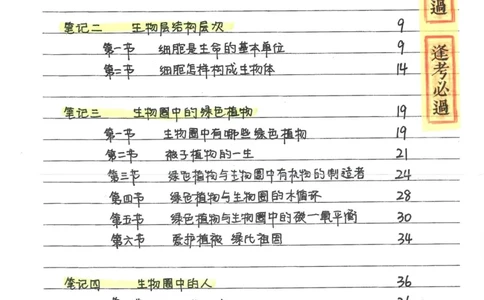 過
笔记二 生物层结构层次 9
第一节 细胞是生命的基本单位 9
第二节 细胞怎样构成生物体 14
逢考必過
笔记三 生物圈中的绿色植物 19
第一节 生物圈中有哪些绿色植物 19
第二节 被子植物的一生 21
第三节 绿色植物与生物圈中有机物的制造者 24
第四节 绿色植物与生物圈的水循环 28
第五节 绿色植物与生物圈中的碳一氧平衡 30
第六节 爱护植被 绿化祖国 34
笔记四 生物圈中的人 36